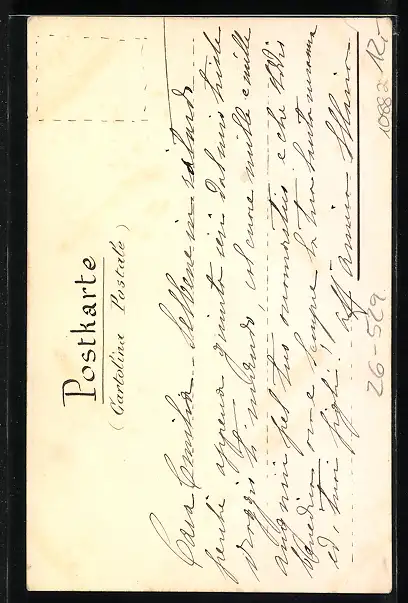 Postkarte
(Cartolina Postale)
Cara Emilia. Sebbene in ritardo
perchè appena giunta ieri dal mio triste
viaggio ti mando, col cuore mille e mille
augurii pel tuo onomastico e che Iddio
benedica ora e sempre la tua santa mamma
ed i tuoi figli!
26-529
10882 12,-